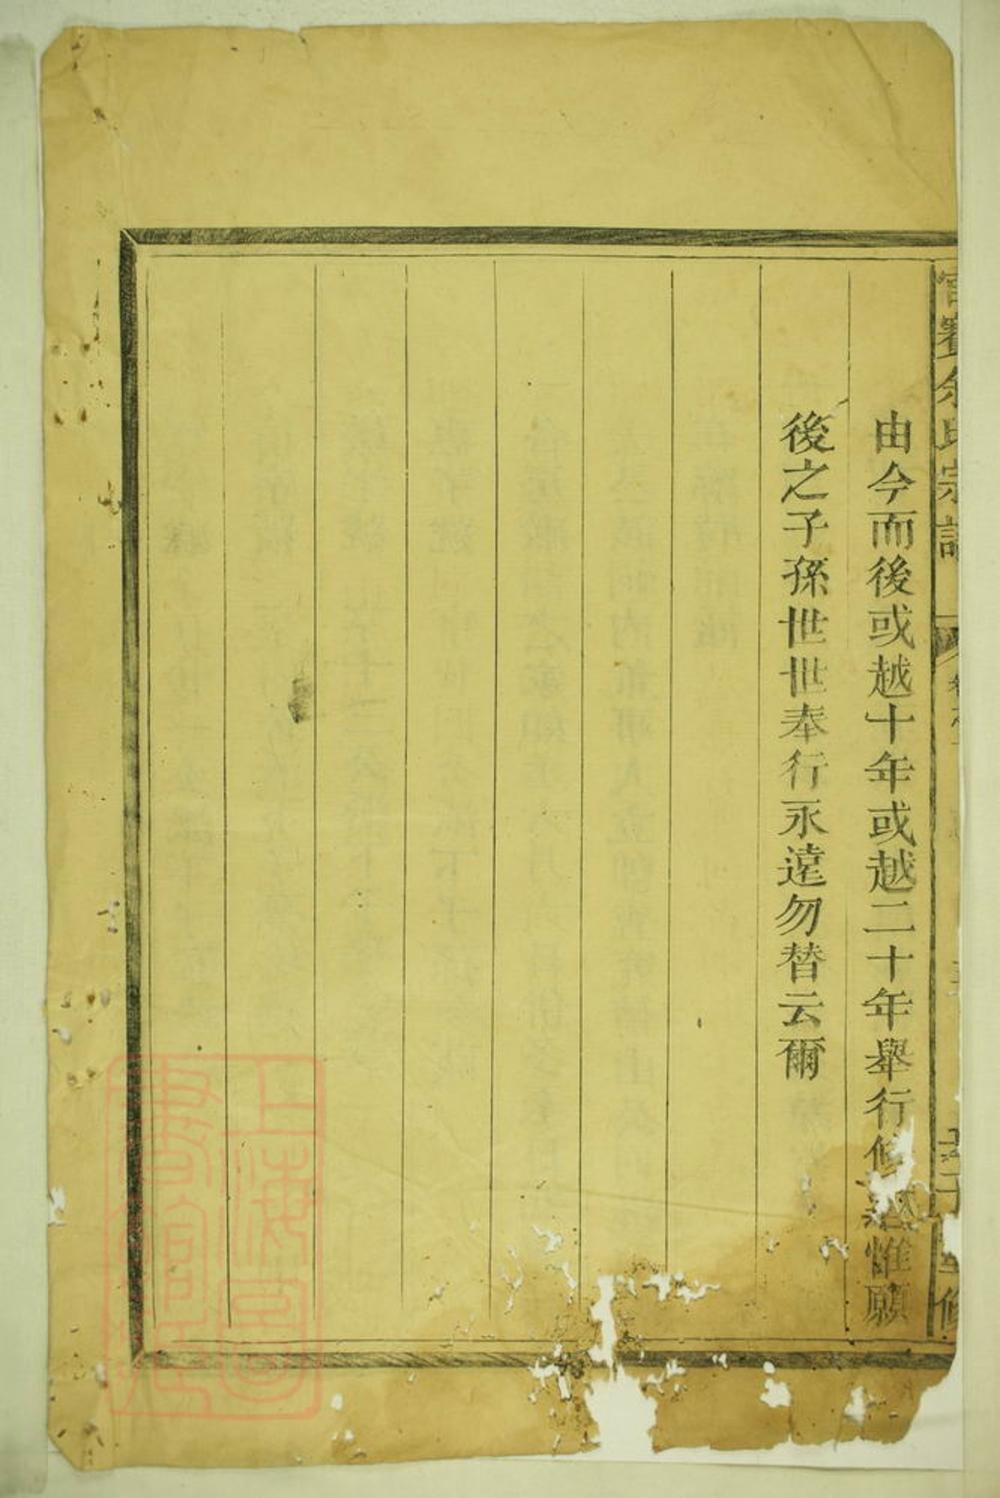 余氏宗譜
由今而後或越十年或越二十年舉行修惟願
後之子孫世世奉行永遠勿替云爾
上海圖書館藏